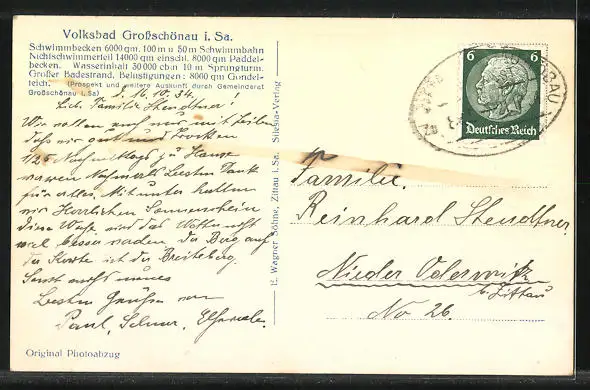 Volksbad Großschönau i. Sa.
Schwimmbecken 6000 qm. 100 m u 50 m Schwimmbahn
Nichtschwimmerteil 14000 qm einschl. 8000 qm Paddel-
becken. Wasserinhalt 30000 cbm 10 m Sprungturm.
Großer Badestrand, Belustigungen: 8000 qm Gondel-
teich. (Prospekt und weitere Auskunft durch Gemeinderat
Großschönau i. Sa)
16.10.34.
Lieb. Familie Stendtner!
Wir wollen auch nur mit Zeilen
daß wir gut und trocken
1/25 Nachmittags zu Hause
waren Nochmals besten Dank
für alles. Mitunter hatten
wir Herrlichen Sonnenschein
Diese Woche wird das Wetter nicht
viel besser werden Der Berg auf
der Karte ist der Breiteberg.
Sonst nichts neues
Besten Grüße von
Paul,
Original Photoabzug
E. Wagner Söhne, Zittau i. Sa. Silesia-Verlag
6 6
Deutsches Reich
Familie.
Reinhard Stendtner
Nieder Oderwitz
b. Zittau
No 26.